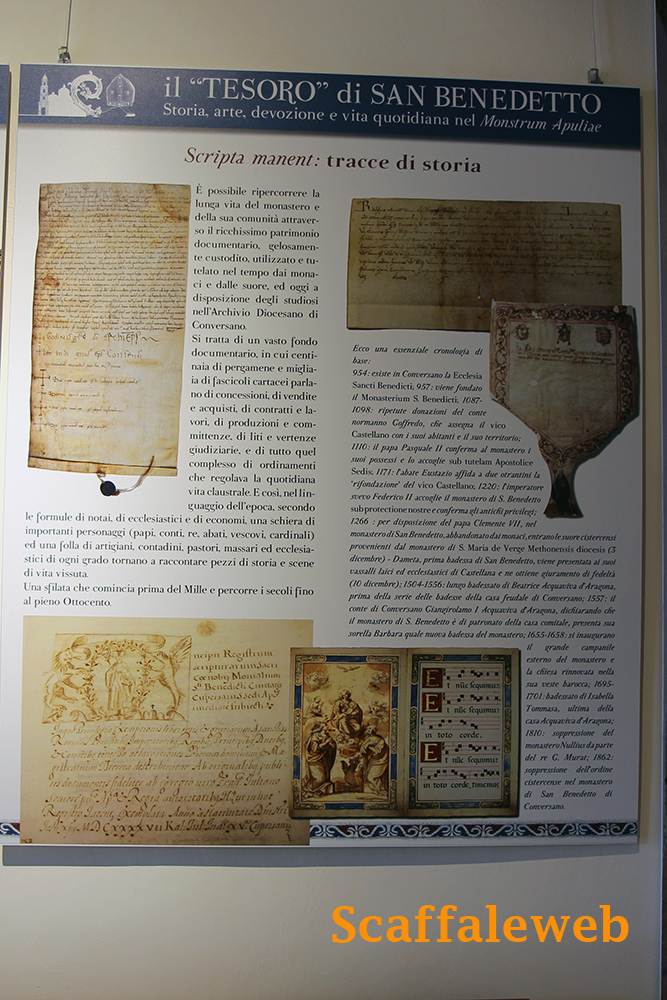 il “TESORO” di SAN BENEDETTO
Storia, arte, devozione e vita quotidiana nel Monstrum Apuliae
Scripta manent: tracce di storia
È possibile ripercorrere la
lunga vita del monastero e
della sua comunità attraver-
so il ricchissimo patrimonio
documentario, gelosamen-
te custodito, utilizzato e tu-
telato nel tempo dai mona-
ci e dalle suore, ed oggi a
disposizione degli studiosi
nell'Archivio Diocesano di
Conversano.
Si tratta di un vasto fondo
documentario, in cui centi-
naia di pergamene e miglia-
ia di fascicoli cartacei parla-
no di concessioni, di vendite
e acquisti, di contratti e la-
vori, di produzioni e com-
mittenze, di liti e vertenze
giudiziarie, e di tutto quel
complesso di ordinamenti
che regolava la quotidiana
vita claustrale. E così, nel lin-
guaggio dell'epoca, secondo
le formule di notai, di ecclesiastici e di economi, una schiera di
importanti personaggi (papi, conti, re, abati, vescovi, cardinali)
ed una folla di artigiani, contadini, pastori, massari ed ecclesia-
stici di ogni grado tornano a raccontare pezzi di storia e scene
di vita vissuta.
Una sfilata che comincia prima del Mille e percorre i secoli fino
al pieno Ottocento.
Ecco una essenziale cronologia di
base:
954: esiste in Conversano la Ecclesia
Sancti Benedicti; 957: viene fondato
il Monasterium S. Benedicti; 1087-
1098: ripetute donazioni del conte
normanno Goffredo, che assegna il vico
Castellano con i suoi abitanti e il suo territorio;
1110: il papa Pasquale II conferma al monastero i
suoi possessi e lo accoglie sub tutelam Apostolice
Sedis; 1171: l'abate Eustazio affida a due otrantini la
'rifondazione' del vico Castellano; 1220: l'imperatore
svevo Federico II accoglie il monastero di S. Benedetto
sub protectione nostre e conferma gli antichi privilegi;
1266 : per disposizione del papa Clemente VII, nel
monastero di San Benedetto, abbandonato dai monaci, entrano le suore cistercensi
provenienti dal monastero di S. Maria de Verge Methonensis diocesis (3
dicembre) - Dameta, prima badessa di San Benedetto, viene presentata ai suoi
vassalli laici ed ecclesiastici di Castellana e ne ottiene giuramento di fedeltà
(10 dicembre); 1504-1556: lungo badessato di Beatrice Acquaviva d'Aragona,
prima della serie delle badesse della casa feudale di Conversano; 1557: il
conte di Conversano Giangirolamo I Acquaviva d'Aragona, dichiarando che
il monastero di S. Benedetto è di patronato della casa comitale, presenta sua
sorella Barbara quale nuova badessa del monastero; 1655-1658: si inaugurano
il grande campanile
esterno del monastero e
la chiesa rinnovata nella
sua veste barocca; 1695-
1701: badessato di Isabella
Tommasa, ultima della
casa Acquaviva d'Aragona;
1810: soppressione del
monastero Nullius da parte
del re G. Murat; 1862:
soppressione dell'ordine
cistercense nel monastero
di San Benedetto di
Conversano.
Et nūc sequimur
Et nūc sequimur
in toto corde,
Et nūc sequimur
in toto corde, timemus
Scaffaleweb